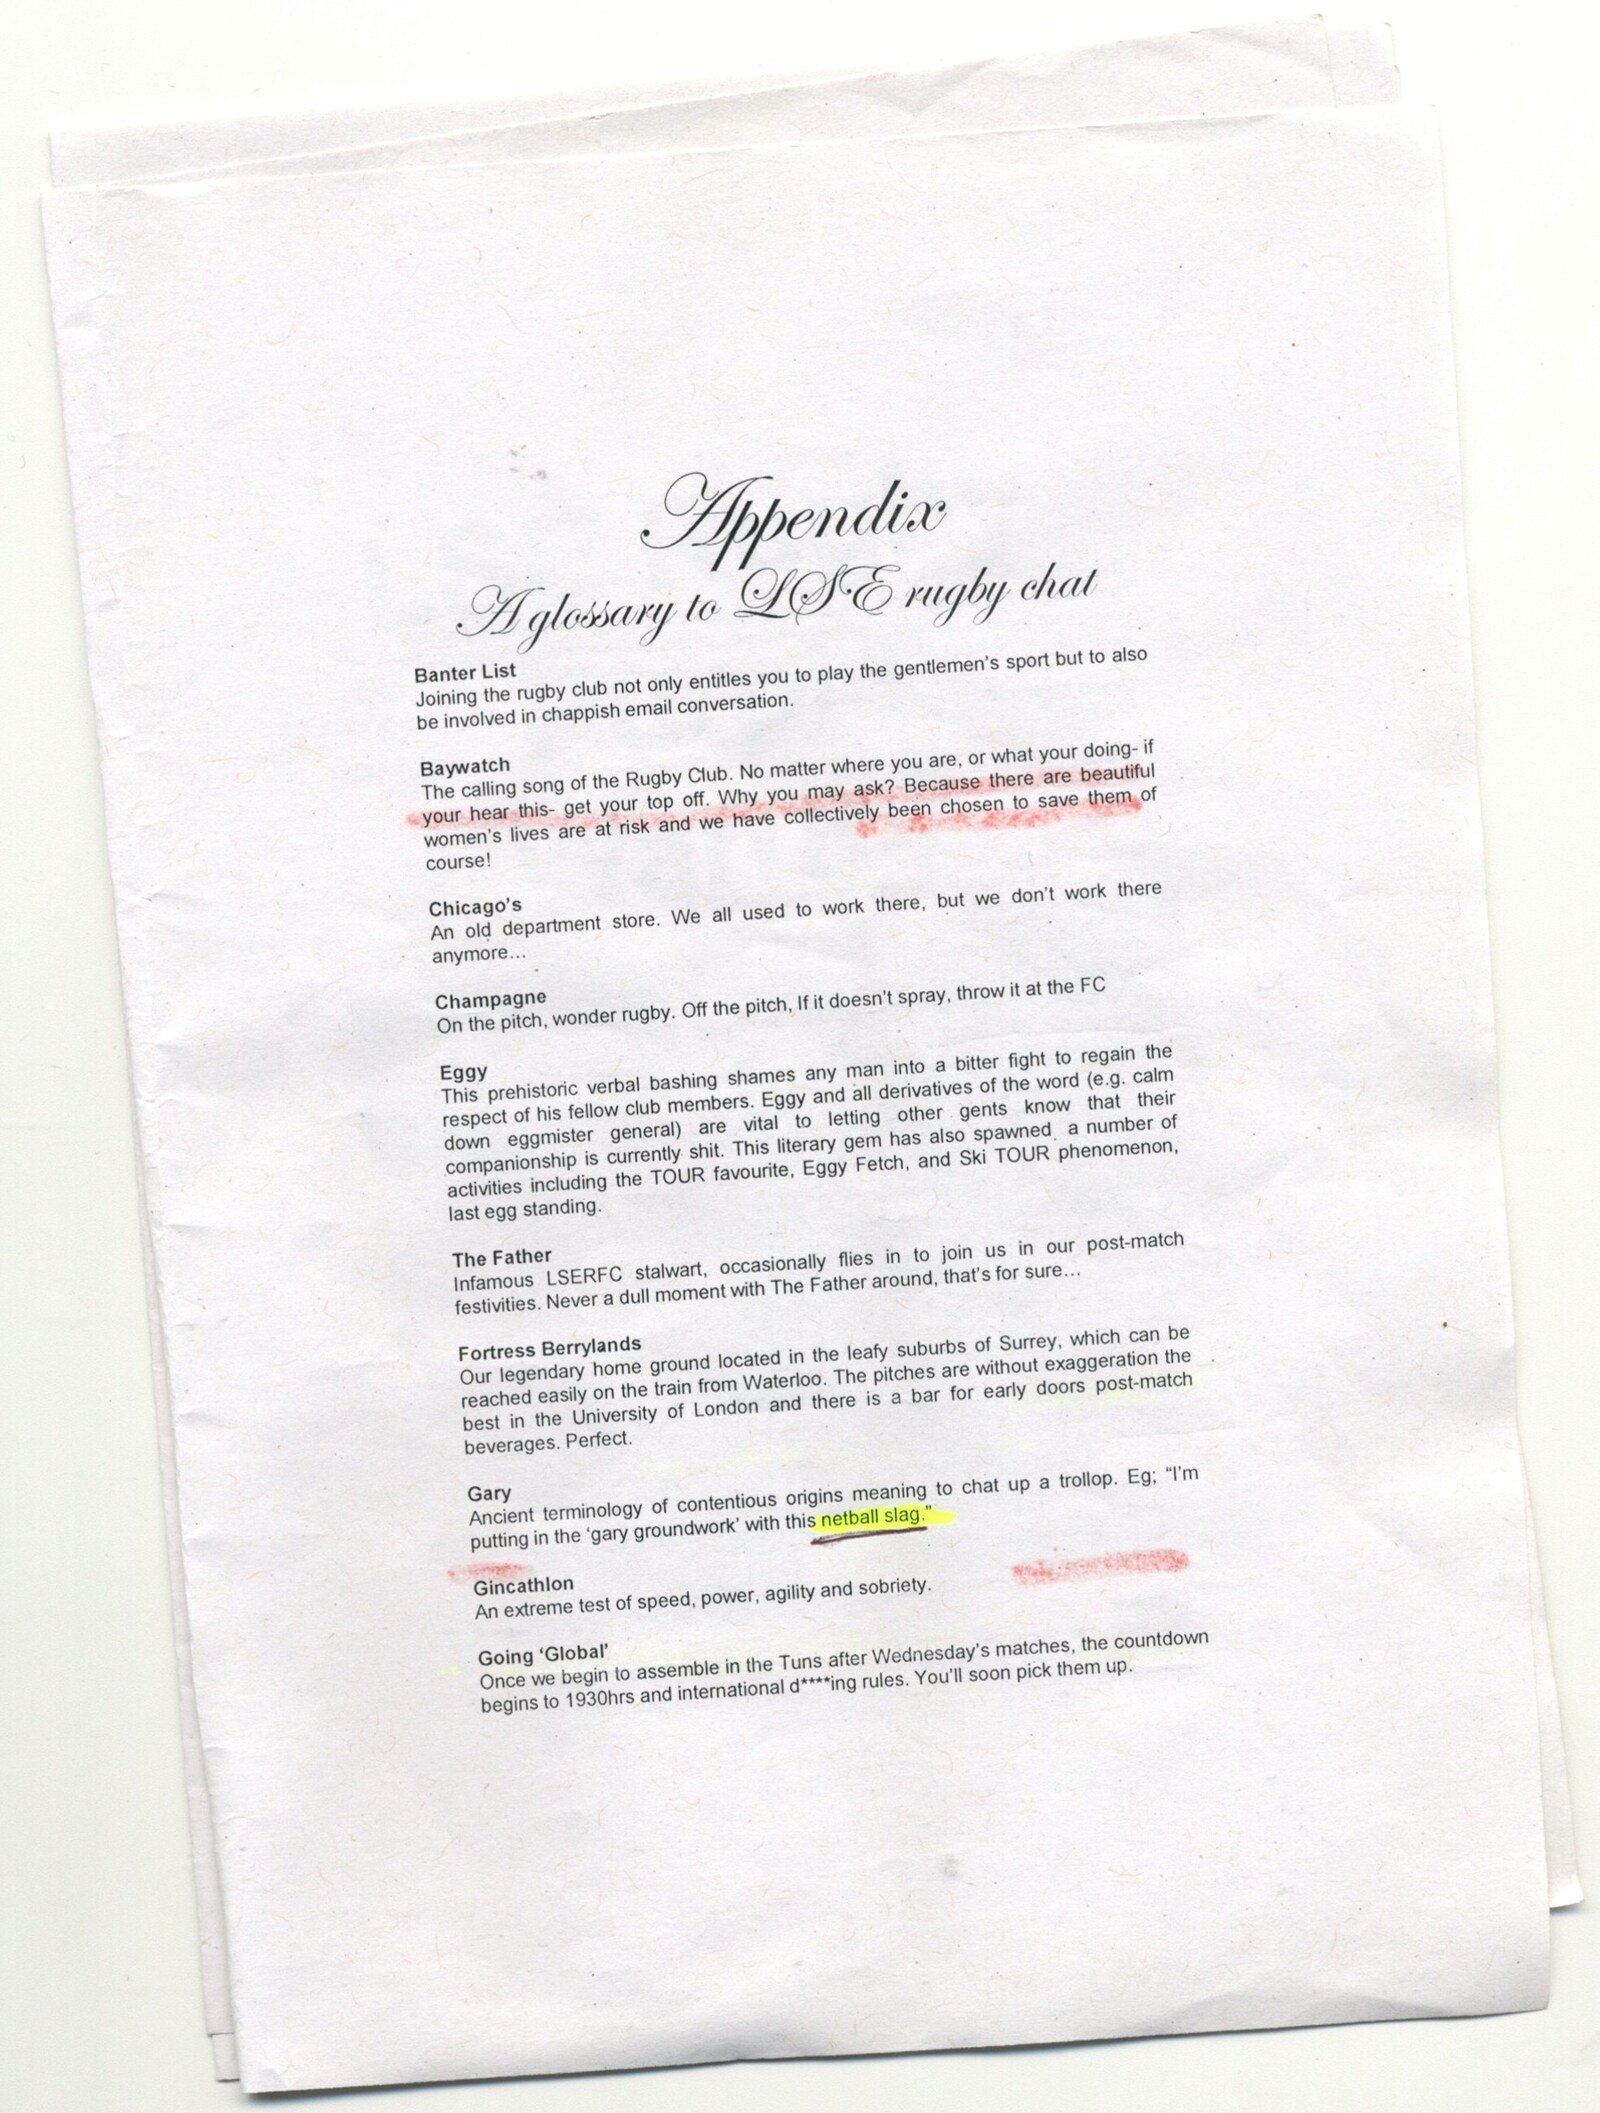 Appendix
A glossary to LSE rugby chat
Banter List
Joining the rugby club not only entitles you to play the gentlemen's sport but to also
be involved in chappish email conversation.
Baywatch
The calling song of the Rugby Club. No matter where you are, or what your doing- if
your hear this- get your top off. Why you may ask? Because there are beautiful
women's lives are at risk and we have collectively been chosen to save them of
course!
Chicago's
An old department store. We all used to work there, but we don't work there
anymore…
Champagne
On the pitch, wonder rugby. Off the pitch, If it doesn't spray, throw it at the FC
Eggy
This prehistoric verbal bashing shames any man into a bitter fight to regain the
respect of his fellow club members. Eggy and all derivatives of the word (e.g. calm
down eggmister general) are vital to letting other gents know that their
companionship is currently shit. This literary gem has also spawned a number of
activities including the TOUR favourite, Eggy Fetch, and Ski TOUR phenomenon,
last egg standing.
The Father
Infamous LSERFC stalwart, occasionally flies in to join us in our post-match
festivities. Never a dull moment with The Father around, that's for sure…
Fortress Berrylands
Our legendary home ground located in the leafy suburbs of Surrey, which can be
reached easily on the train from Waterloo. The pitches are without exaggeration the
best in the University of London and there is a bar for early doors post-match
beverages. Perfect.
Gary
Ancient terminology of contentious origins meaning to chat up a trollop. Eg; "I'm
putting in the 'gary groundwork' with this netball slag."
Gincathlon
An extreme test of speed, power, agility and sobriety.
Going 'Global'
Once we begin to assemble in the Tuns after Wednesday's matches, the countdown
begins to 1930hrs and international d****ing rules. You'll soon pick them up.